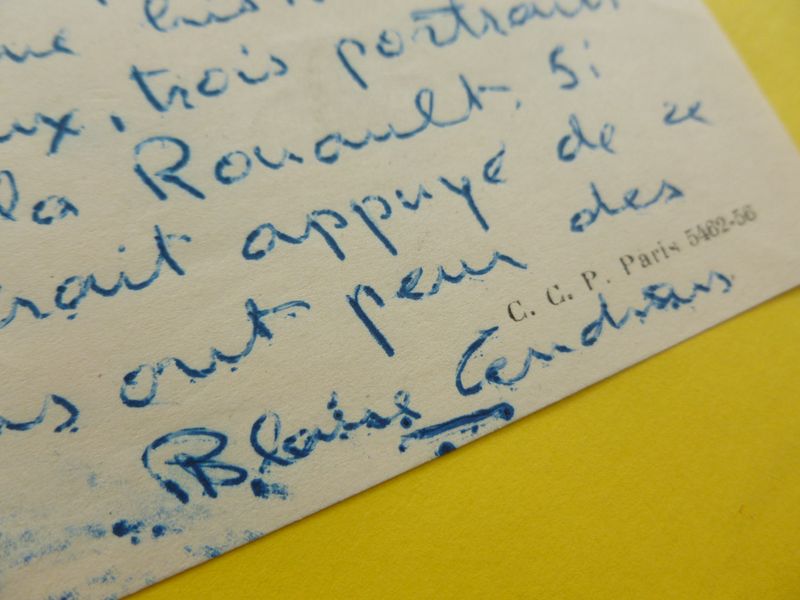 ux, trois portraits
la Rouault. Si
rait appuyé de ce
as ont peur des
C. C. P. Paris 5462-56
Blaise Cendrars